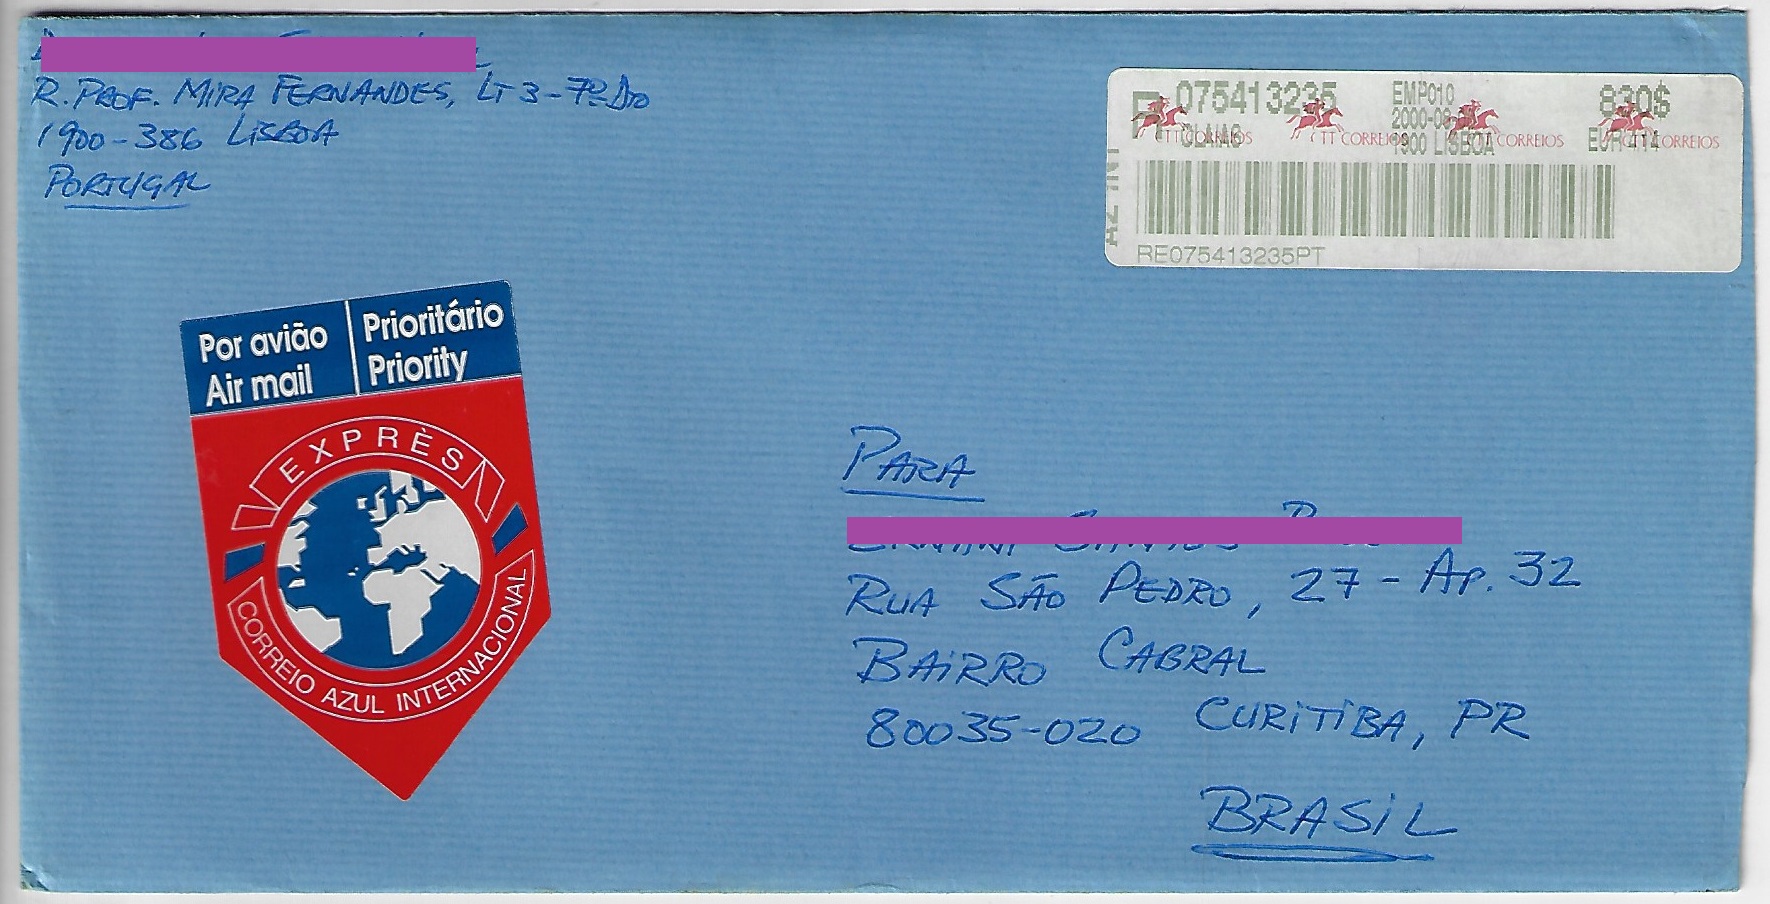 R. PROF. MIRA FERNANDES, LT 3 - 7º Dto
1900-386 LISBOA
PORTUGAL
R 075413235
OLAIAS
EMP010
2000-08
1900 LISBOA
830$
EUR 4,14
CTT CORREIOS CTT CORREIOS CTT CORREIOS CTT CORREIOS
AZ INT
RE075413235PT
Por avião
Air mail
Prioritário
Priority
EXPRÈS
CORREIO AZUL INTERNACIONAL
PARA
RUA SÃO PEDRO, 27 - AP. 32
BAIRRO CABRAL
80035-020 CURITIBA, PR
BRASIL